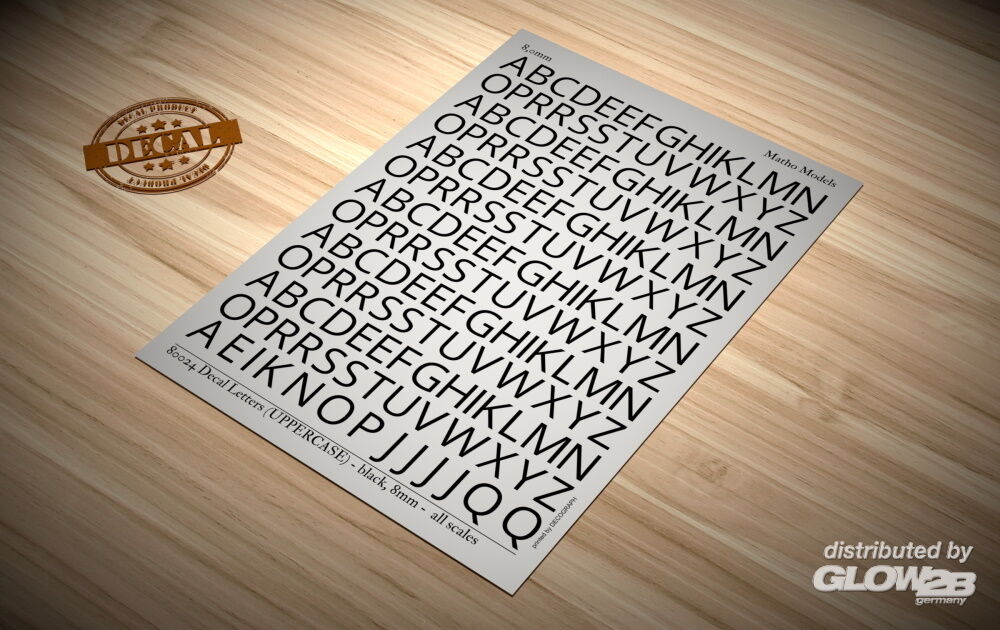 8,0mm
Matho Models
ABCDEEFGHIKLMN
OPRRSSTUVWXYZ
ABCDEEFGHIKLMN
OPRRSSTUVWXYZ
ABCDEEFGHIKLMN
OPRRSSTUVWXYZ
ABCDEEFGHIKLMN
OPRRSSTUVWXYZ
ABCDEEFGHIKLMN
OPRRSSTUVWXYZ
ABCDEEFGHIKLMN
OPRRSSTUVWXYZ
AEIKNOPJJJJQQ
80024 Decal Letters (UPPERCASE) - black, 8mm - all scales
printed by DECOGRAPH
DECAL PRODUCT
DECAL
DECAL PRODUCT
distributed by
GLOW2B
germany